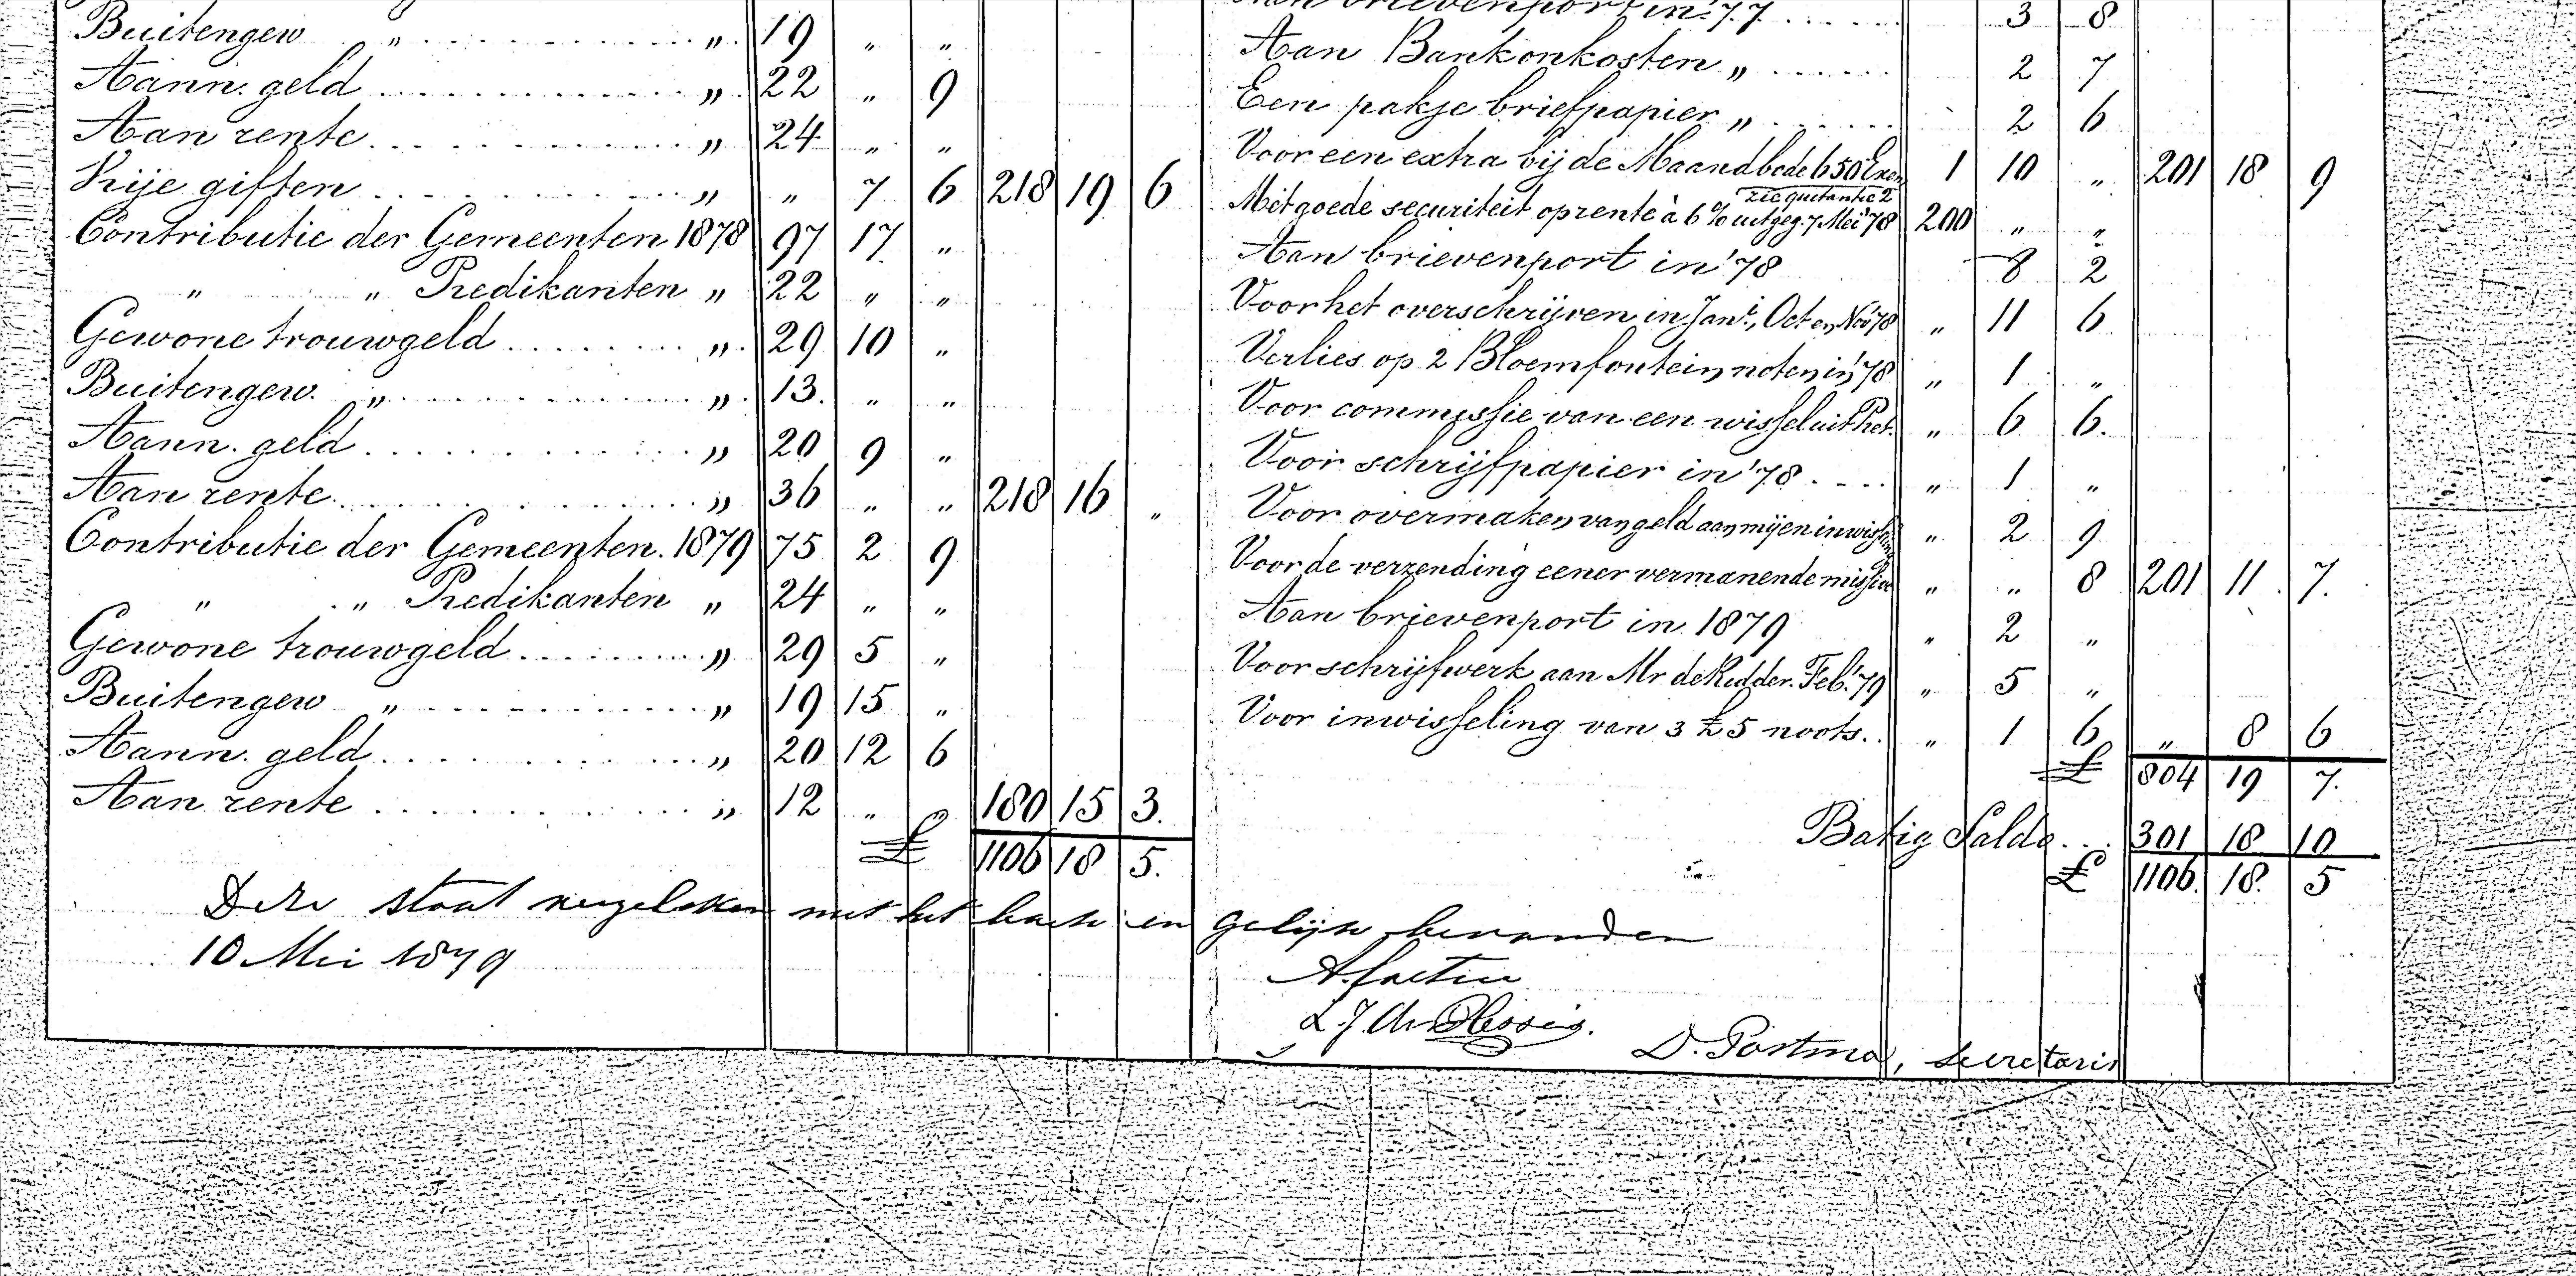 Buitengew „ „ 19 „ „
Aann. geld „ 22 „ 9
Aan rente „ 24 „ „
Vrije giften „ „ 7 6 218 19 6
Contributie der Gemeenten 1878 97 17 „
„ „ Predikanten „ 22 „ „
Gewone trouwgeld „ 29 10 „
Buitengew. „ „ 13. „ „
Aann. geld „ 20 9 „
Aan rente „ 36 „ „ 218 16 „
Contributie der Gemeenten. 1879 75 2 9
„ „ Predikanten „ 24 „ „
Gewone trouwgeld „ 29 5 „
Buitengew „ „ 19 15 „
Aann. geld „ 20 12 6
Aan rente „ 12 „ „ 180 15 3.
£ 1106 18 5.
Aan brievenport in '77 3 8
Aan Bankonkosten „ 2 7
Een pakje briefpapier „ 2 6
Voor een extra bij de Maandbode 650 Exen 1 10 „ 201 18 9
zie quitantie 2
Met goede securiteit op rente à 6 % uitgeg. 7 Mei '78 200 „ „
Aan brievenport in '78 8 2
Voor het overschrijven in Jan., Oct en Nov '78 „ 11 6
Verlies op 2 Bloemfontein noten in '78 „ 1 „
Voor commissie van een wissel uit Pret. „ 6 6.
Voor schrijfpapier in '78 „ 1 „
Voor overmaken van geld aan mij en inwisseling „ 2 9
Voor de verzending eener vermanende missive „ „ 8 201 11 7.
Aan brievenport in 1879 „ 2 „
Voor schrijfwerk aan Mr de Ridder. Feb. '79 „ 5 „
Voor inwisseling van 3 £ 5 noots. „ 1 6 „ 8 6
£ 804 19 7.
Batig Saldo 301 18 10
£ 1106. 18. 5
Deze staat vergeleken met het boek en gelijk bevonden
10 Mei 1879
L. J. du Plessis.
D. Postma, secretaris